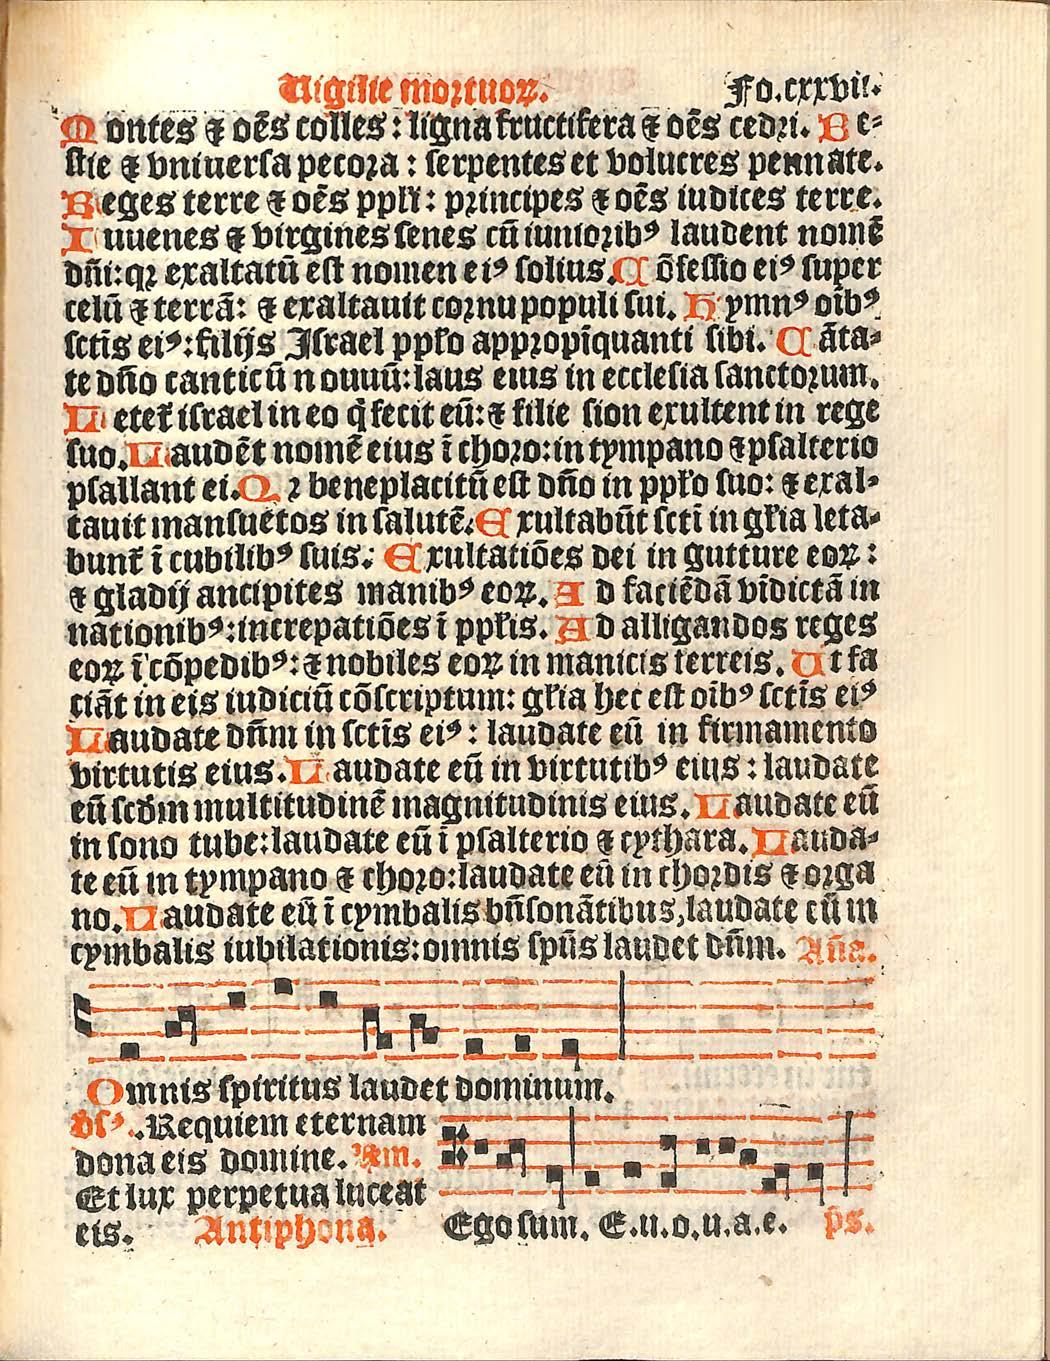 Uigilie mortuoꝝ. Fo.cxxvii.
Montes ⁊ oēs colles : ligna fructifera ⁊ oēs cedri. Be-
stie ⁊ vniuersa pecora : serpentes et volucres pennate.
Reges terre ⁊ oēs ppłi : principes ⁊ oēs iudices terre.
Iuuenes ⁊ virgines senes cū iuniorib⁹ laudent nomē
dñi:qꝛ exaltatū est nomen ei⁹ solius. Cōfessio ei⁹ super
celū ⁊ terrā: ⁊ exaltauit cornu populi sui. Hymn⁹ oīb⁹
sctīs ei⁹:filijs Israel ppło appropīquanti sibi. Cāta-
te dño canticū nouuū:laus eius in ecclesia sanctorum.
Letet᷑ israel in eo q̄ fecit eū:⁊ filie sion exultent in rege
suo. Laudēt nomē eius ī choro:in tympano ⁊ psalterio
psallant ei. Qꝛ beneplacitū est dño in ppło suo: ⁊ exal-
tauit mansuetos in salutē. Exultabūt sctī in głia leta-
bunt᷑ ī cubilib⁹ suis: Exultatiōes dei in gutture eoꝝ :
⁊ gladij ancipites manib⁹ eoꝝ. Ad faciēdā vīdictā in
nationib⁹:increpatiōes ī ppłis. Ad alligandos reges
eoꝝ ī cōpedib⁹: ⁊ nobiles eoꝝ in manicis ferreis. Ut fa
ciāt in eis iudiciū cōscriptum: głia hec est oīb⁹ sctīs ei⁹
Laudate dñm in sctīs ei⁹ : laudate eū in firmamento
virtutis eius. Laudate eū in virtutib⁹ eius : laudate
eū scđm multitudinē magnitudinis eius. Laudate eū
in sono tube:laudate eū ī psalterio ⁊ cythara. Lauda-
te eū in tympano ⁊ choro:laudate eū in chordis ⁊ orga
no. Laudate eū ī cymbalis bñsonātibus, laudate eū in
cymbalis iubilationis:omnis spūs laudet dñm. Aña.
Omnis spiritus laudet dominum.
Requiem eternam
dona eis domine.
Et lux perpetua luceat
eis. Antiphona. Ego sum. E.u.o.u.a.e. p̄s.